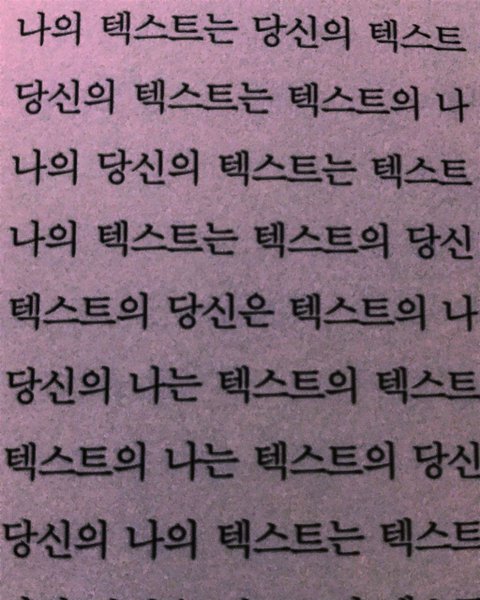 나의 텍스트는 당신의 텍스트
당신의 텍스트는 텍스트의 나
나의 당신의 텍스트는 텍스트
나의 텍스트는 텍스트의 당신
텍스트의 당신은 텍스트의 나
당신의 나는 텍스트의 텍스트
텍스트의 나는 텍스트의 당신
당신의 나의 텍스트는 텍스트